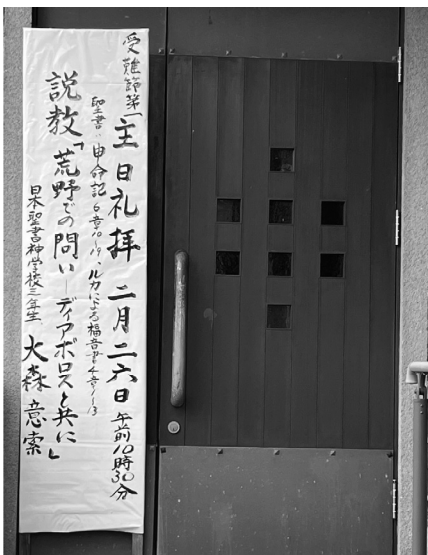 受難節第1主日礼拝 二月二六日 午前10時30分
聖書：申命記6章10〜19、ルカによる福音書4章1〜13
説教「荒野での問い―ディアボロスと共に」
日本聖書神学校三年生 大森意索